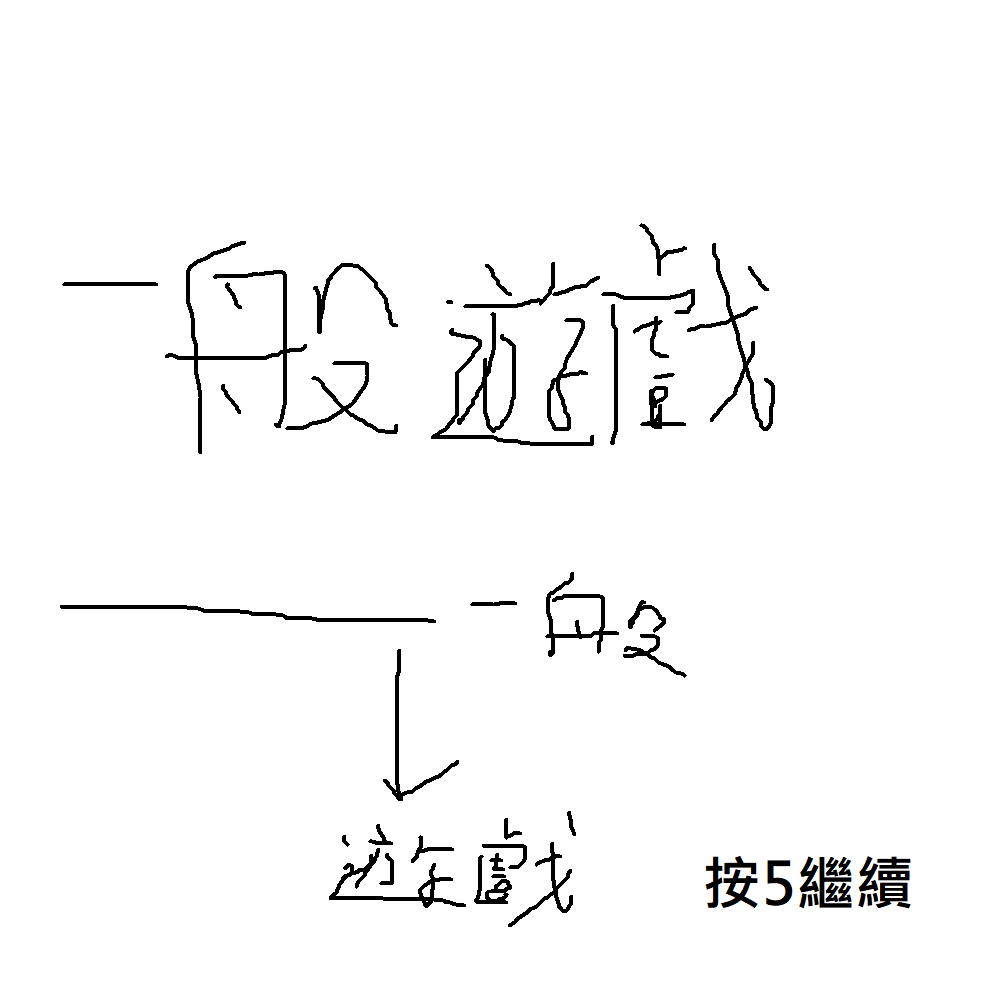 一般遊戲
一般
遊戲
按5繼續